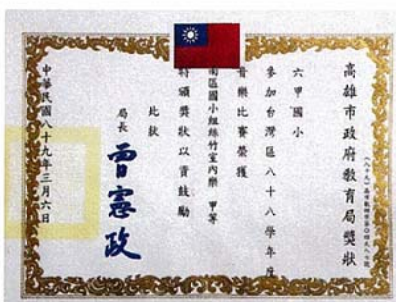 高雄市政府教育局獎狀
六甲國小
參加台灣區八十八學年度
音樂比賽榮獲
南區國小組絲竹室內樂 甲等
特頒獎狀以資鼓勵
此狀
局長 曾憲政
中華民國八十九年三月六日